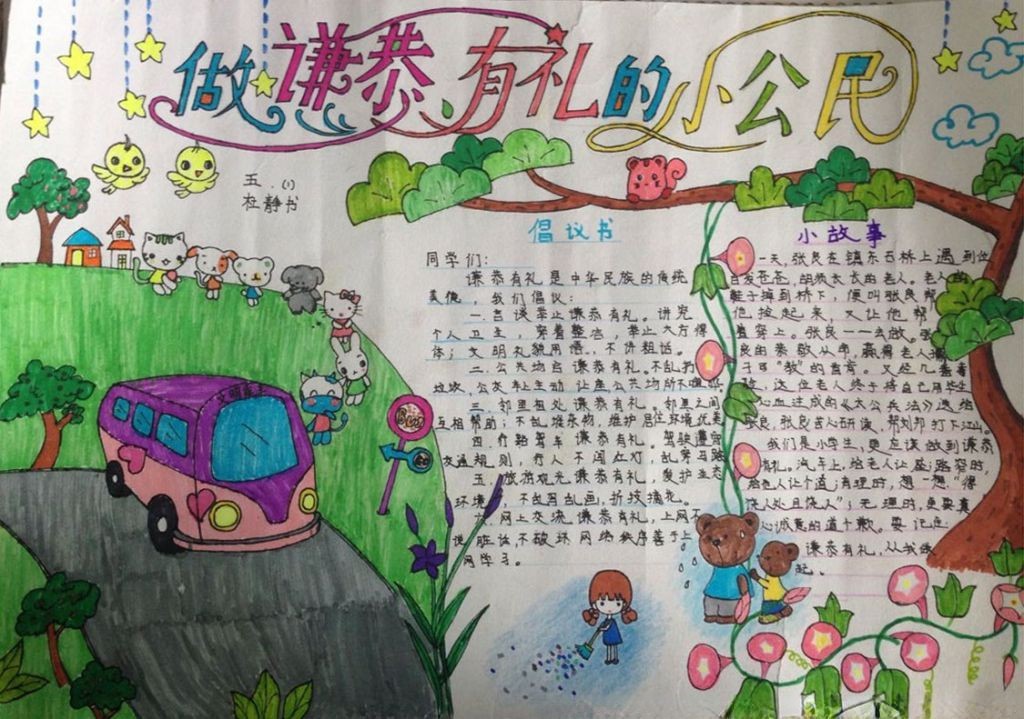 做谦恭有礼的小公民
五.(1)
杜静书
倡议书
同学们:
谦恭有礼是中华民族的传统
美德，我们倡议:
一.言谈举止谦恭有礼。讲究
个人卫生，穿着整洁，举止大方得
体;文明礼貌用语，不讲粗话。
二.公共场当谦恭有礼。不乱扔
垃圾,公交车上主动让座公共场所不喧哗
三.邻里相处谦恭有礼。邻里之间
互相帮助;不乱堆杂物,维护居住环境优美
四.行路驾车谦恭有礼。驾驶遵守
交通规则，行人不闯红灯，乱穿马路
五.旅游观光谦恭有礼。爱护生态
环境，不乱写乱画,折枝摘花。
六.网上交流谦恭有礼,上网不
说脏话,不破坏网络秩序善于上
网学习。
小故事
一天,张良在镇东石桥上遇到位
白发苍苍,胡须长长的老人。老人的
鞋子掉到桥下，便叫张良帮
他捡起来，又让他帮
着穿上。张良一一去做。张
良由恭敬从命,赢得老人
子可"教"的首肯。又经几番考
验，这位老人终于将自己用毕生
心血注成的《太公兵法》送给
张良。张良苦心研读,帮刘邦打下江山。
我们是小学生，更应该做到谦恭
有礼。汽车上,给老人让座;路窄时,
给老人让个道;有理时,想一想"得
饶人处且饶人";无理时,更要真
心诚意的道个歉。要记住
谦恭有礼,从我做
起.
Bus